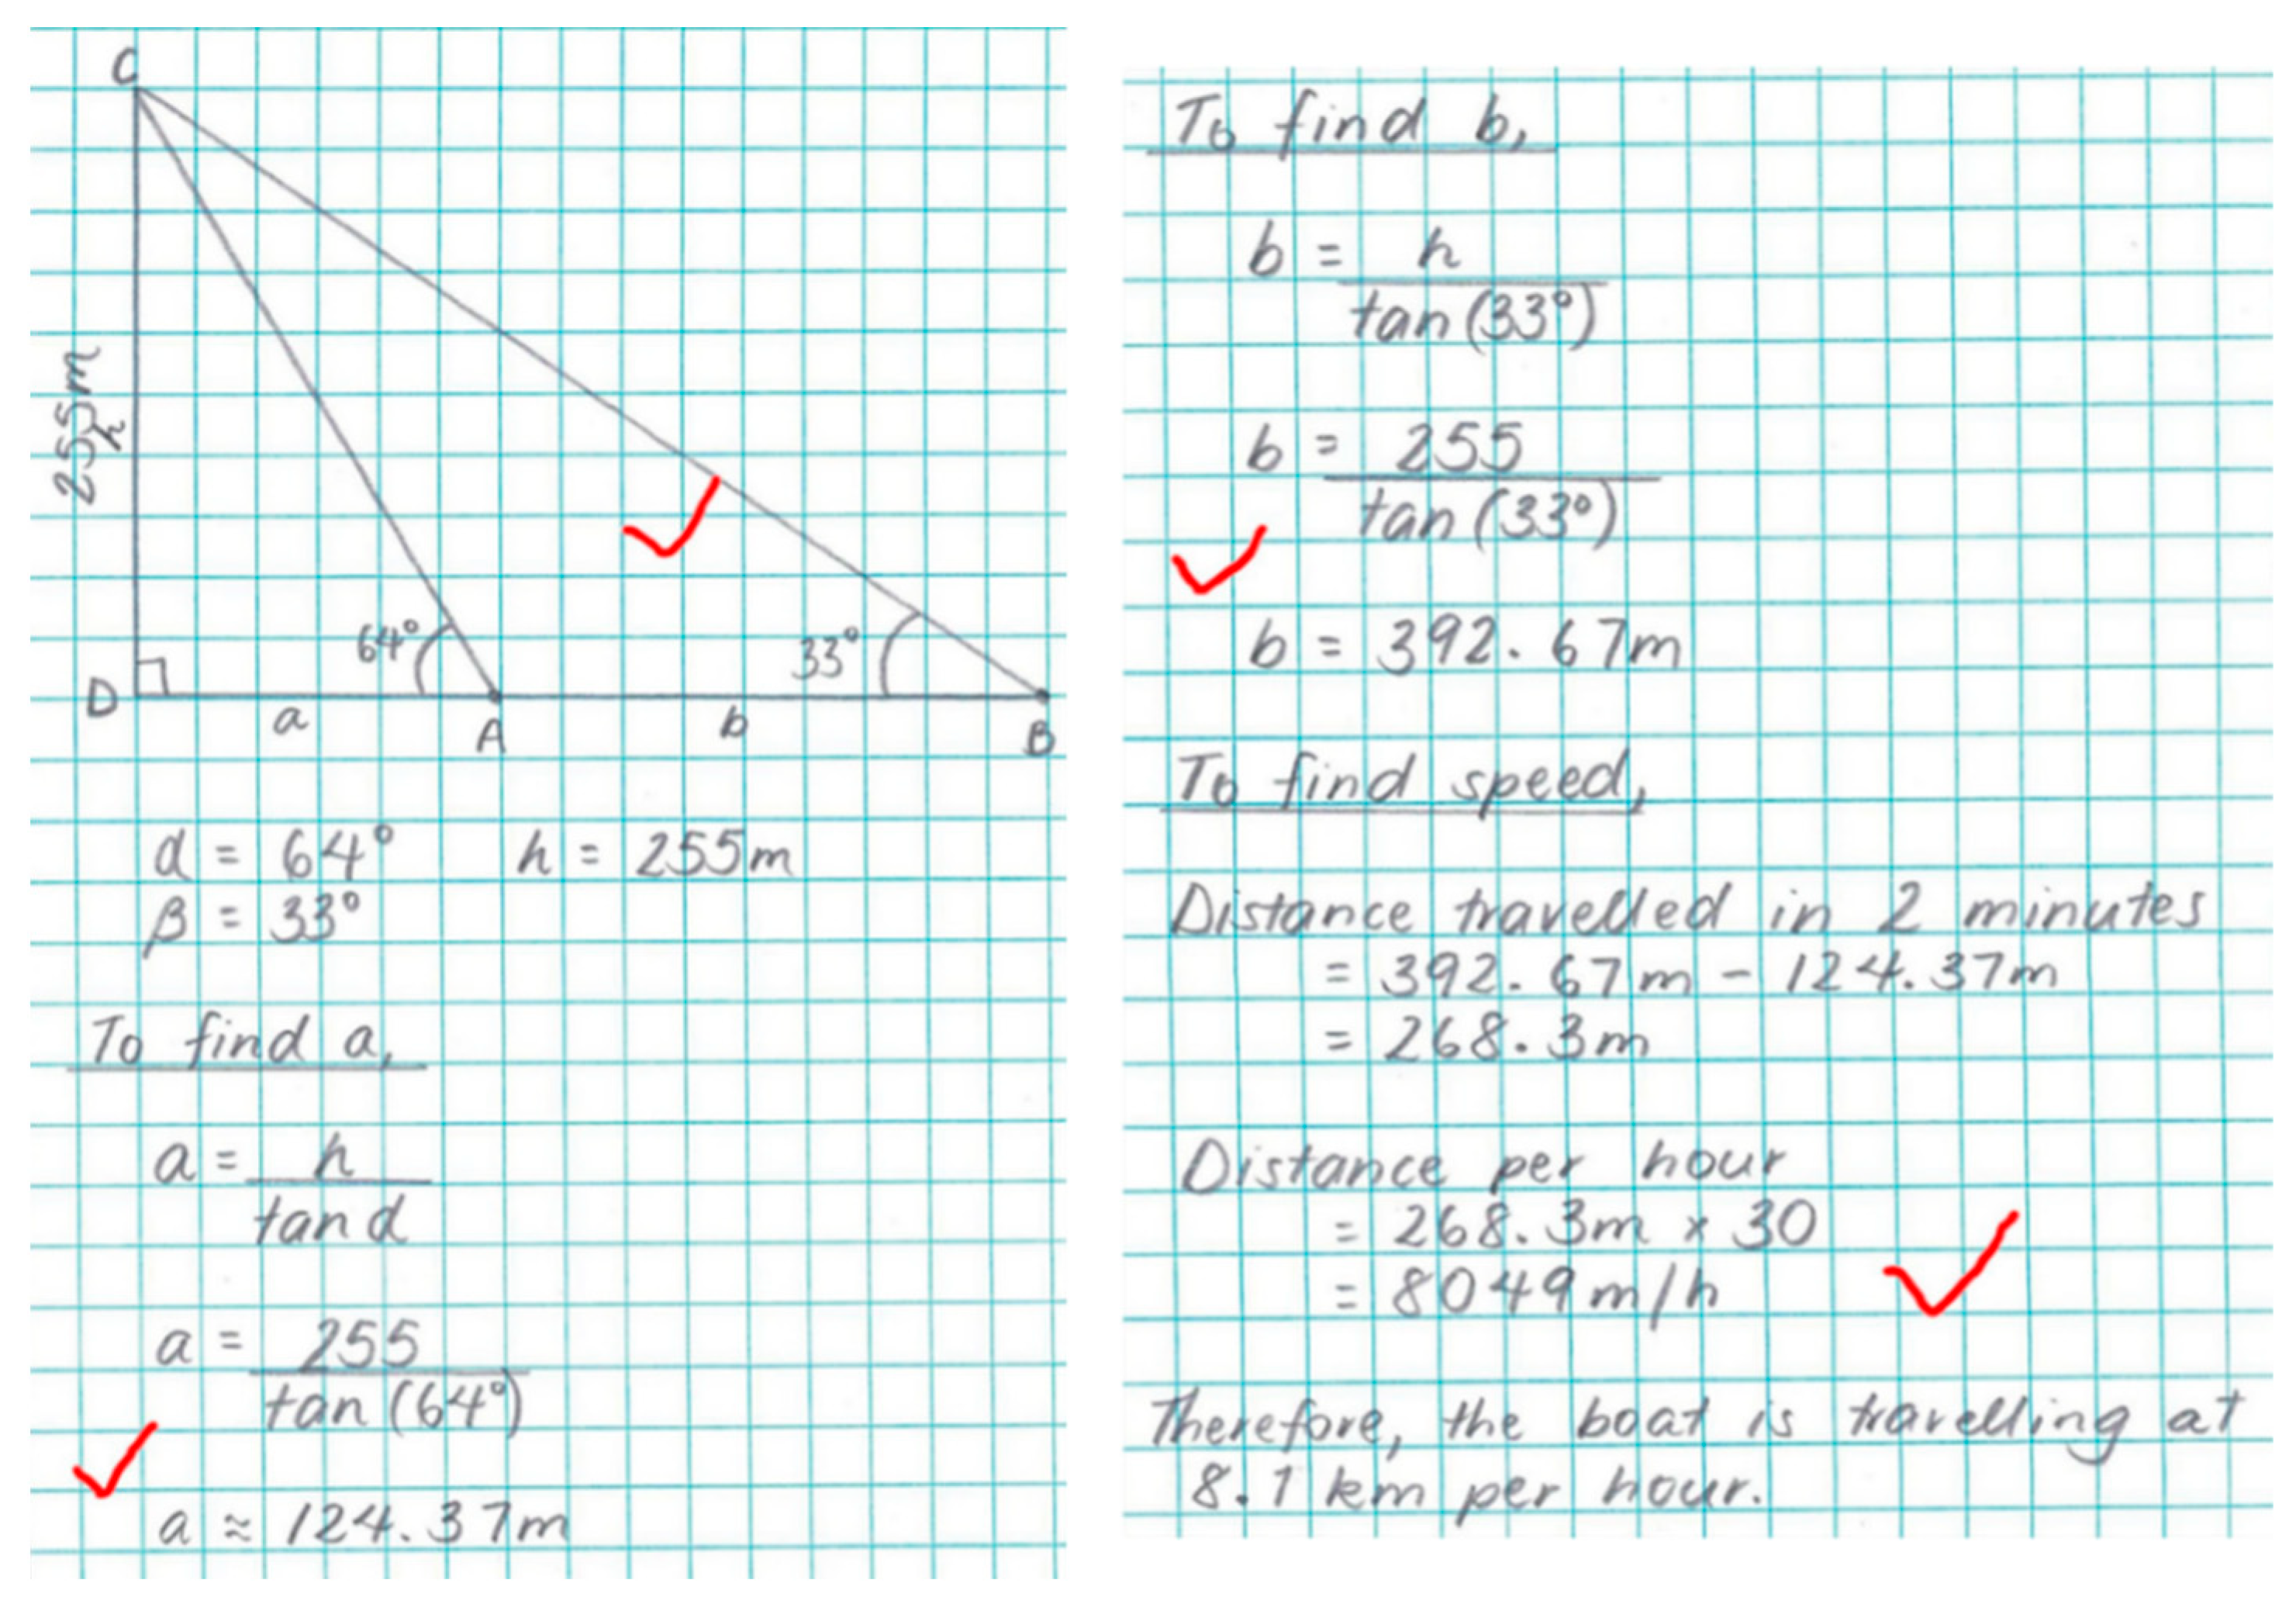 C
255m
h
64°
33°
D
a
A
b
B
α = 64° h = 255m
β = 33°
To find a,
a = h
tan α
a = 255
tan (64°)
a ≈ 124.37m
To find b,
b = h
tan (33°)
b = 255
tan (33°)
b = 392.67m
To find speed,
Distance travelled in 2 minutes
= 392.67m - 124.37m
= 268.3m
Distance per hour
= 268.3m × 30
= 8049m/h
Therefore, the boat is travelling at
8.1 km per hour.